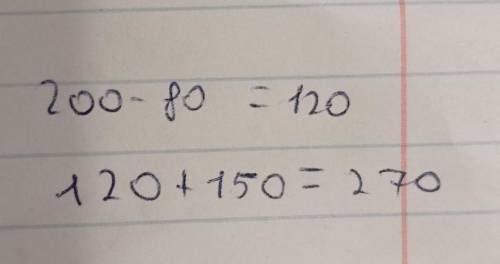 200-80 = 120
120+150=270